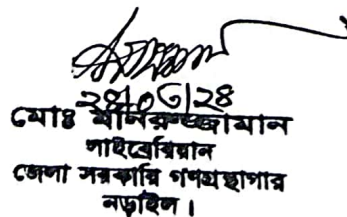 মোঃ মনিরুজ্জামান
লাইব্রেরিয়ান
জেলা সরকারি গণগ্রন্থাগার
নড়াইল।